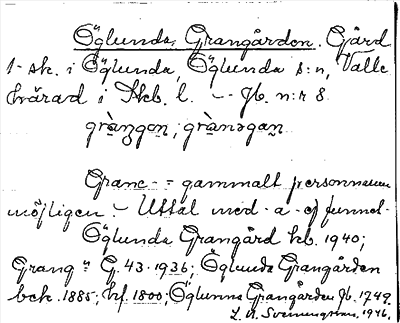 Öglunda, Grangården. Gård
1 sk. i Öglunda, Öglunda s:n, Valle
härad i Skb. l. – Jb. n:r 8
Granc- = gammalt personnamn
möjligen. – Uttal med -a- ej funnet.
Öglunda Grangård hb. 1940;
Grang:n G. 43. 1936; Öglunda Grangården
bck. 1885; hf 1800; Öglunna Grangården Jb. 1749.
1946.